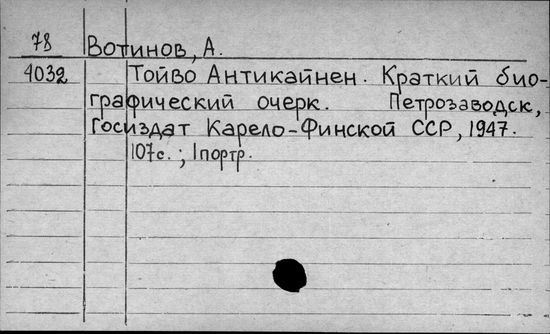 78 Вотинов, А.
4032 Тойво Антикайнен. Краткий био-
графический очерк. Петрозаводск,
Госиздат Карело-Финской ССР, 1947.
107с. ; 1портр.